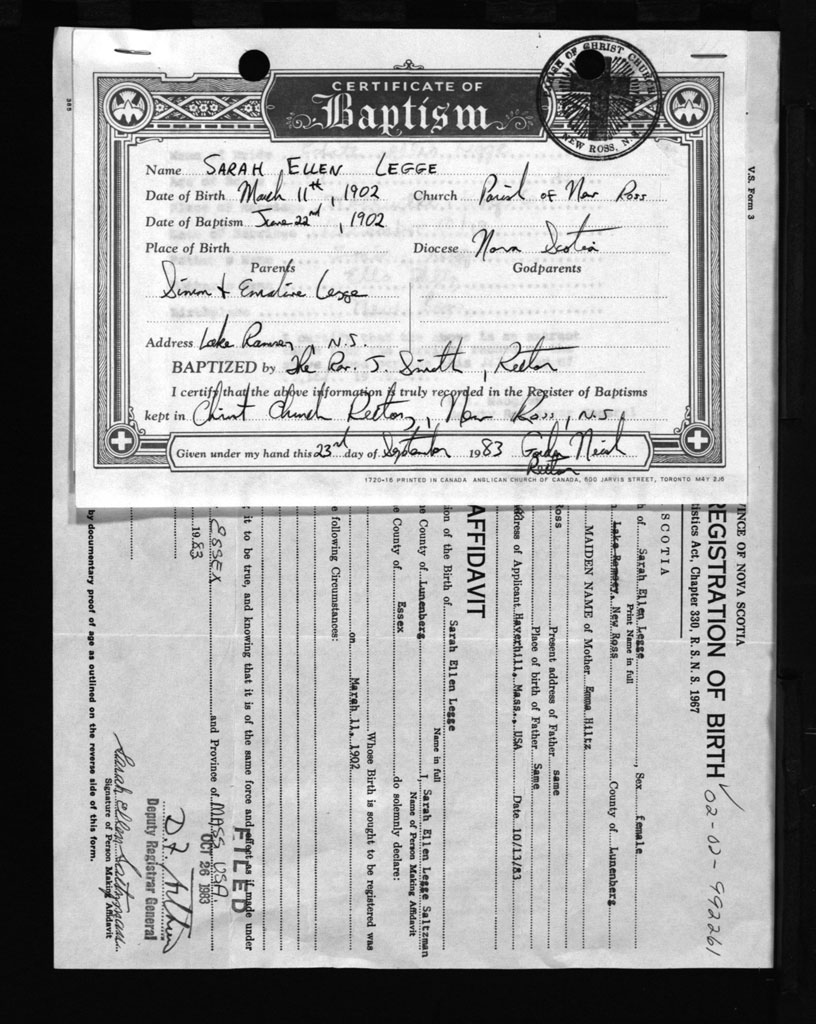 CERTIFICATE OF
Baptism
PARISH OF CHRIST CHURCH
NEW ROSS, N.S.
Name SARAH ELLEN LEGGE
Date of Birth March 11th, 1902 Church Parish of New Ross
Date of Baptism June 22nd, 1902
Place of Birth Diocese Nova Scotia
Parents Godparents
Simon & Emaline Legge
Address Lake Ramsey, N.S.
BAPTIZED by The Rev. J. Smith, Rector
I certify that the above information is truly recorded in the Register of Baptisms
kept in Christ Church Rectory, New Ross, N.S.
Given under my hand this 23rd day of September 1983 Gordon Neish
Rector
1720-16 PRINTED IN CANADA ANGLICAN CHURCH OF CANADA, 600 JARVIS STREET, TORONTO M4Y 2J6
V.S. Form 3
INCE OF NOVA SCOTIA
EGISTRATION OF BIRTH 02-02-992261
istics Act, Chapter 330, R.S.N.S. 1967
SCOTIA
h of Sarah Ellen Legge, Sex female
Print Name in full
Lake Ramsey, New Ross County of Lunenberg
MAIDEN NAME of Mother Emma Hiltz
Present address of Father same
oss Place of birth of Father Same
ddress of Applicant Haverhill, Mass., USA Date 10/13/83
AFFIDAVIT
ion of the Birth of Sarah Ellen Legge
Name in full
I, Sarah Ellen Legge Saltzman
Name of Person Making Affidavit
e County of Lunenberg
e County of Essex do solemnly declare:
Whose Birth is sought to be registered was
on March 11, 1902
e following Circumstances:
it to be true, and knowing that it is of the same force and effect as if made under
FILED
OCT 26 1983
ESSEX and Province of MASS USA.
1983
Deputy Registrar General
Sarah Ellen Saltzman
Signature of Person Making Affidavit
by documentary proof of age as outlined on the reverse side of this form.